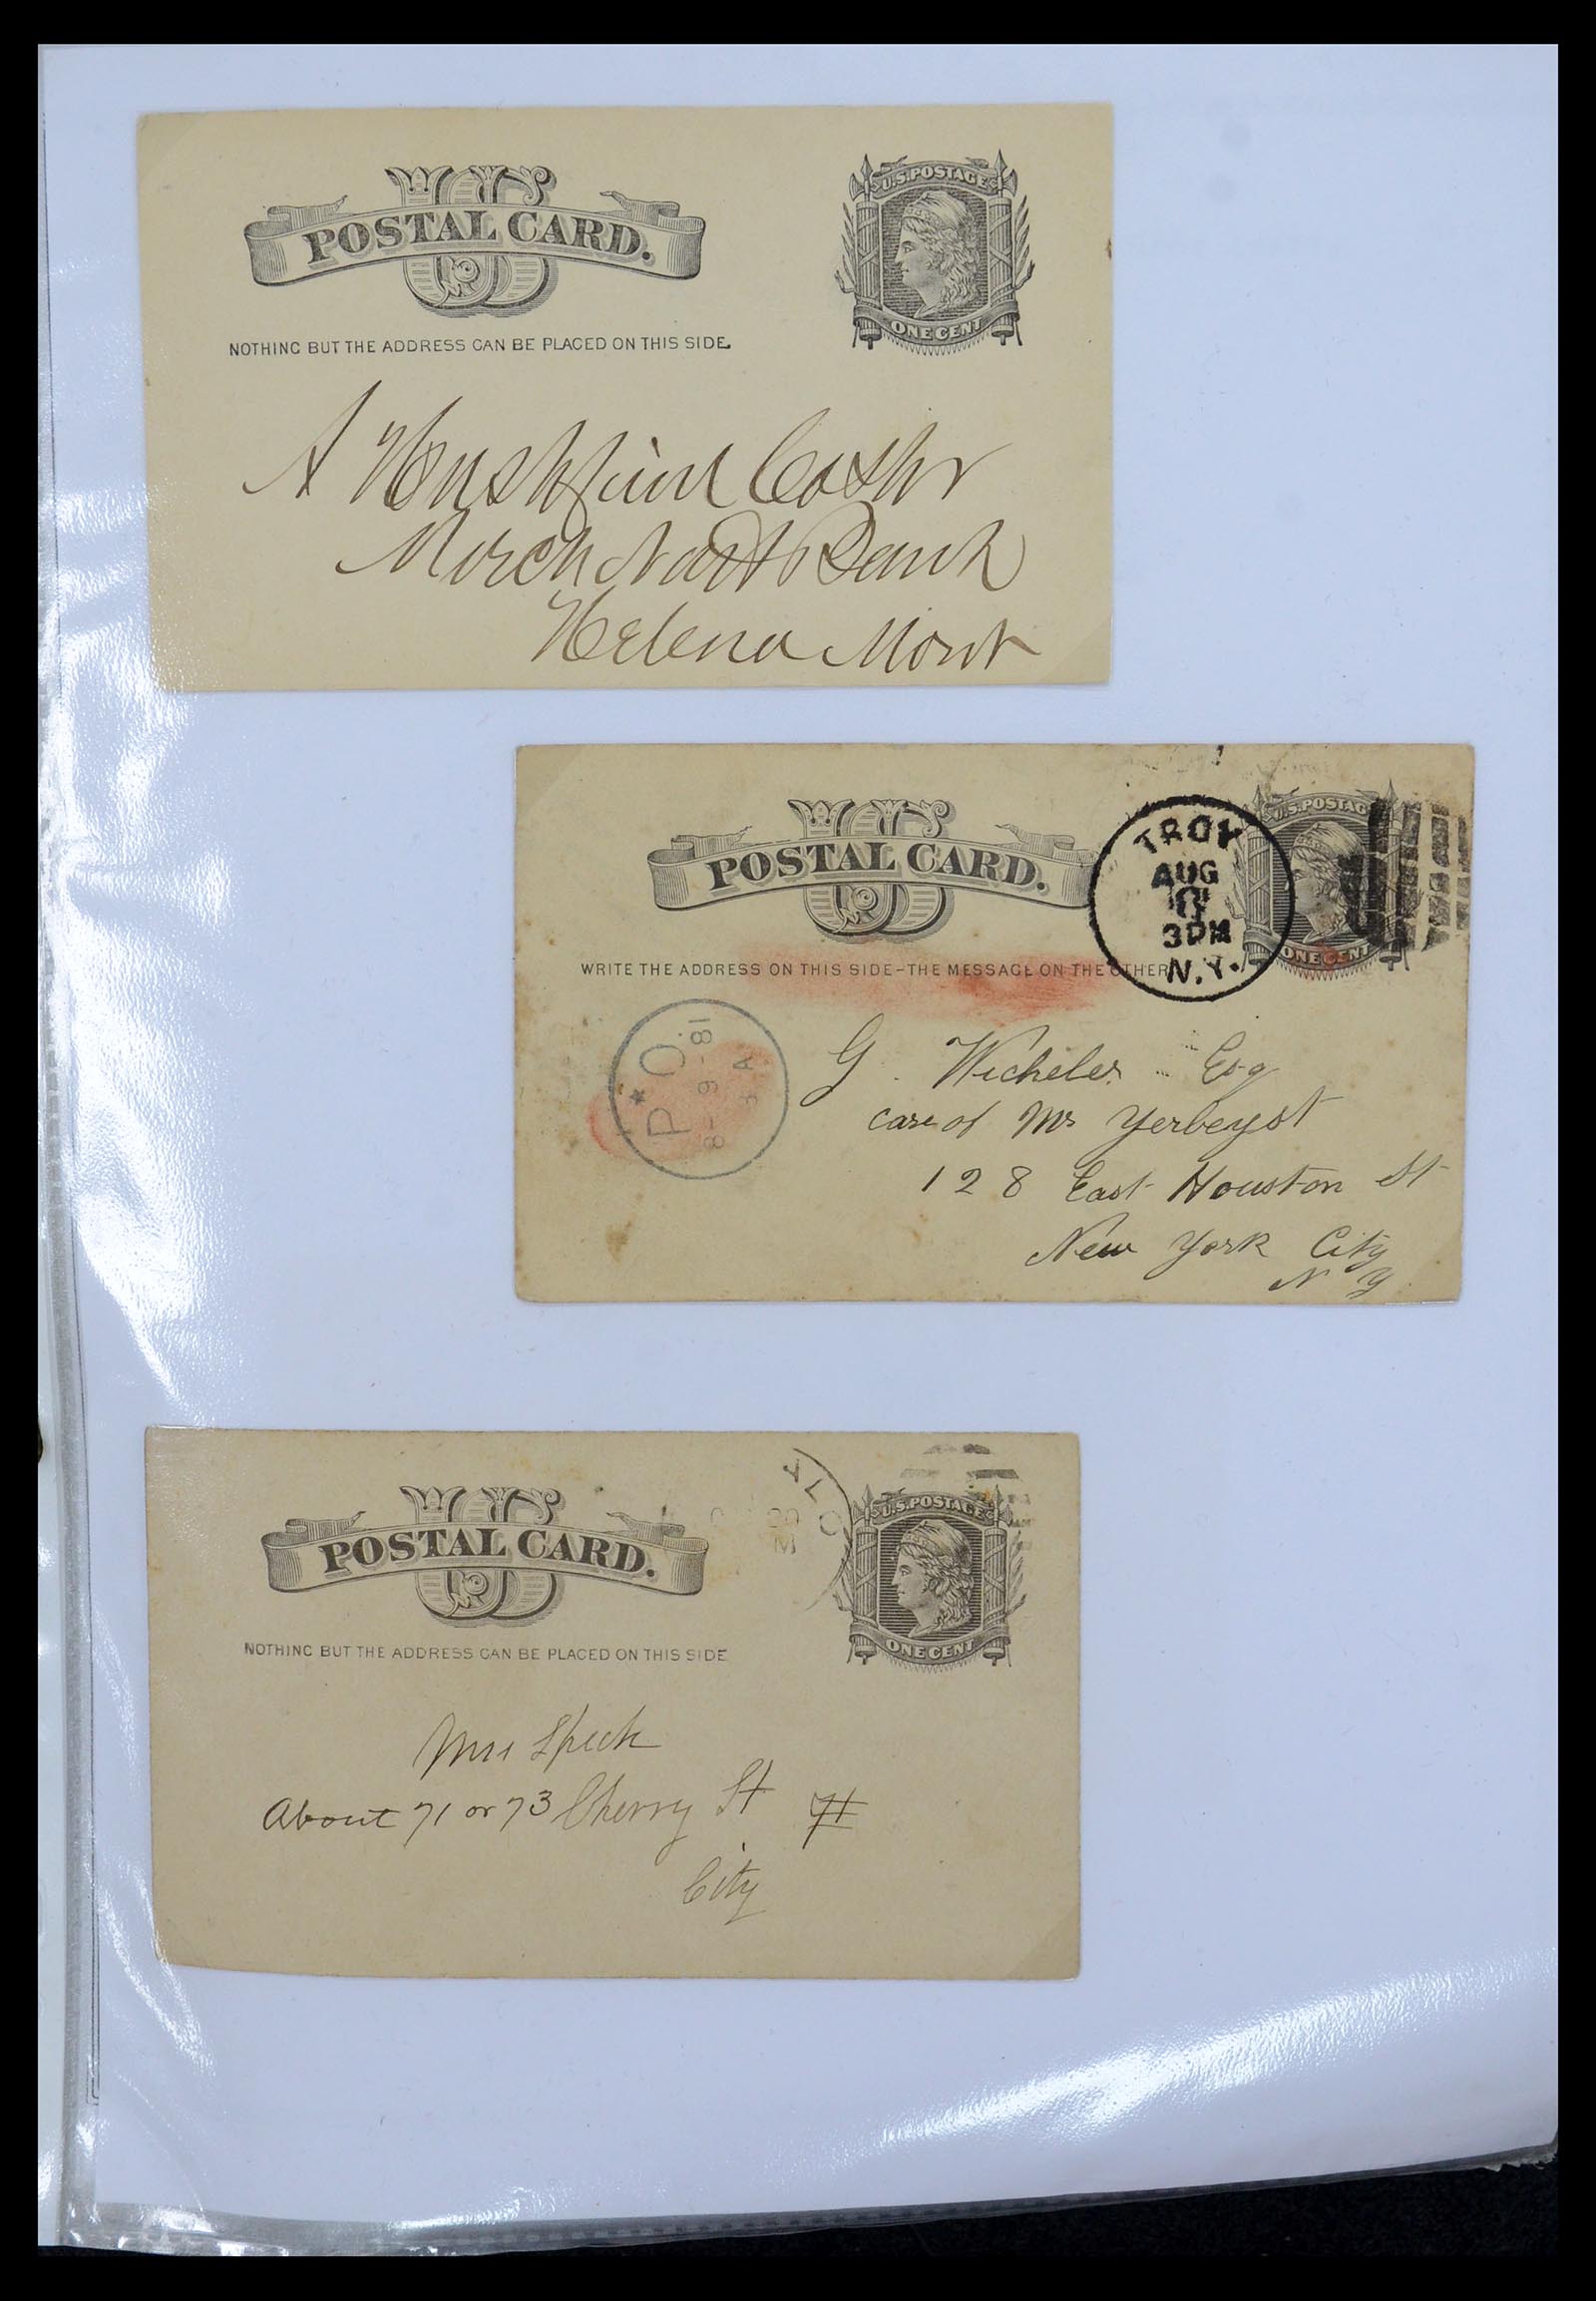 US
POSTAL CARD.
U.S. POSTAGE
ONE CENT
NOTHING BUT THE ADDRESS CAN BE PLACED ON THIS SIDE.
A
Merch Natl Bank
Helena Mont
US
POSTAL CARD.
U.S. POSTAG
ONE CENT
TROY
AUG
8
3PM
N.Y.
WRITE THE ADDRESS ON THIS SIDE-THE MESSAGE ON THE OTHER
P.O.
8-9-81
A
G. Wicheles Esq
care of Mr Yerbeyst
128 East Houston St
New York City
N Y
ALO
US
POSTAL CARD.
U.S. POSTAGE
ONE CENT
NOTHING BUT THE ADDRESS CAN BE PLACED ON THIS SIDE
Mrs Speck
About 71 or 73 Cherry St
City